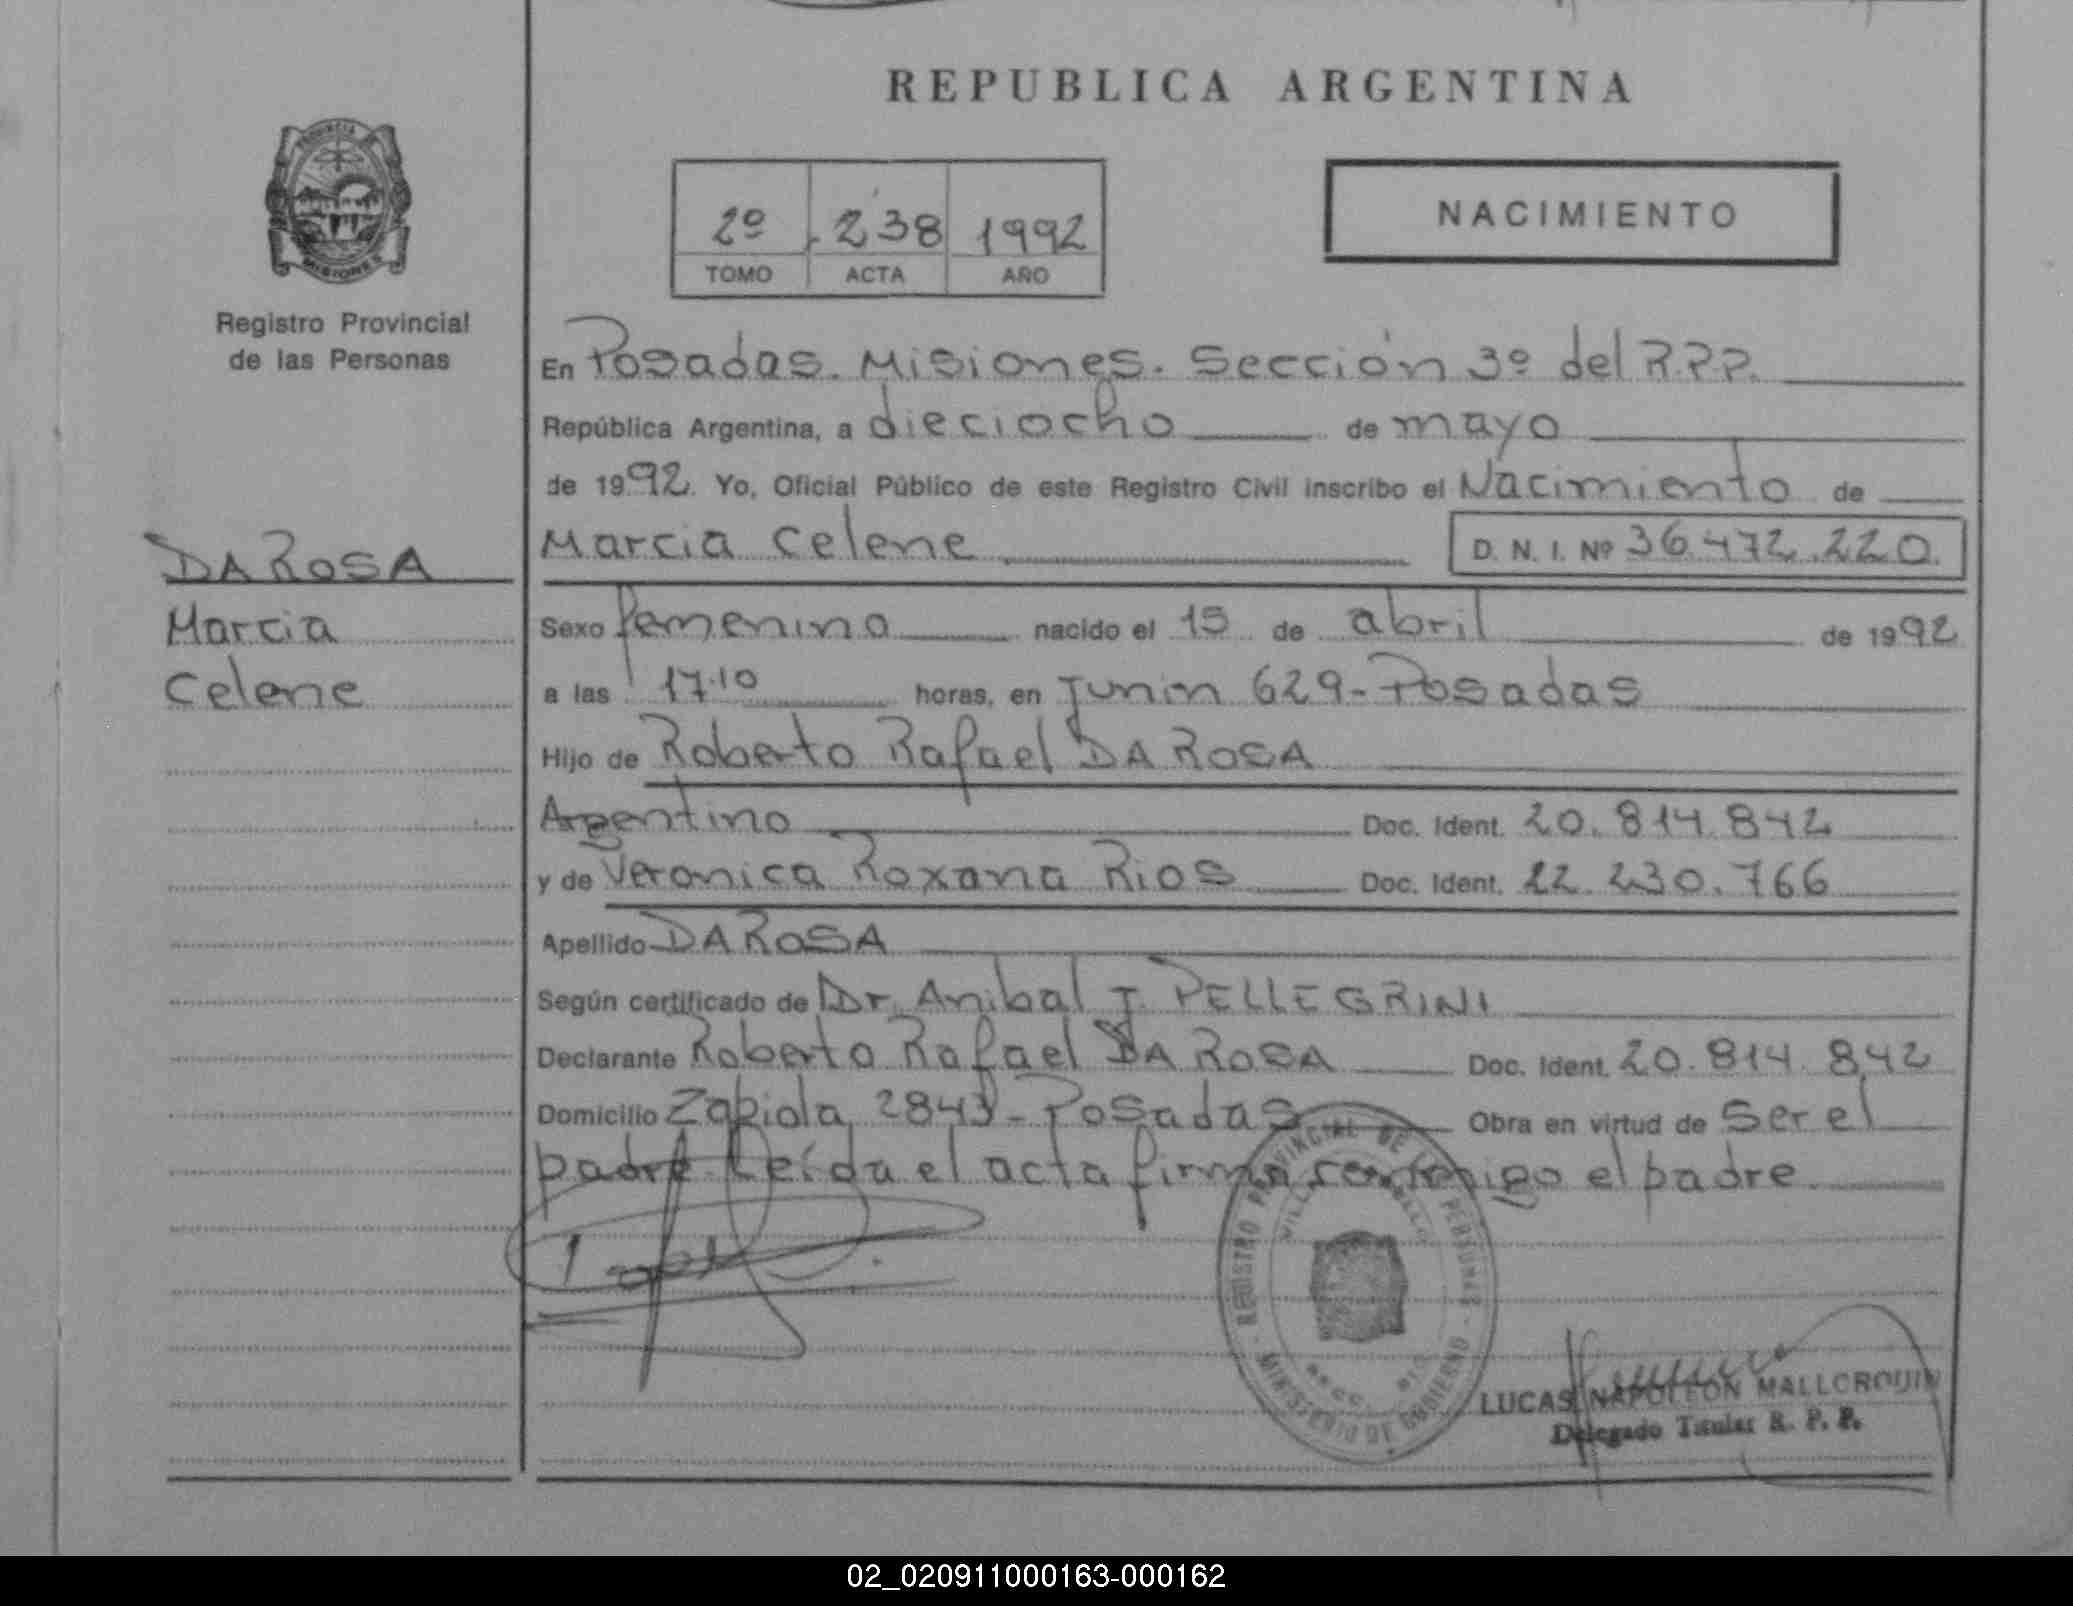 REPUBLICA ARGENTINA
PROVINCIA
MISIONES
Registro Provincial
de las Personas
2º 238 1992
TOMO ACTA AÑO
NACIMIENTO
DA ROSA
Marcia
Celene
En Posadas. Misiones. Sección 3º del R.P.P.
República Argentina, a dieciocho de mayo
de 1992. Yo, Oficial Público de este Registro Civil inscribo el Nacimiento de
Marcia Celene D. N. I. Nº 36.472.220.
Sexo femenino nacido el 15 de abril de 1992
a las 17.10 horas, en Junin 629-Posadas
Hijo de Roberto Rafael DA ROSA
Argentino Doc. Ident. 20.814.842
y de Veronica Roxana Rios Doc. Ident. 22.230.766
Apellido DA ROSA
Según certificado de Dr. Anibal J. PELLEGRINI
Declarante Roberto Rafael DA ROSA Doc. Ident. 20.814.842
Domicilio Zapiola 2843-Posadas Obra en virtud de Ser el
padre. Leída el acta firma conmigo el padre.
REGISTRO PROVINCIAL DE LAS PERSONAS
MINISTERIO DE GOBIERNO
LUCAS NAPOLEON MALLORQUIN
Delegado Titular R. P. P.
02_020911000163-000162